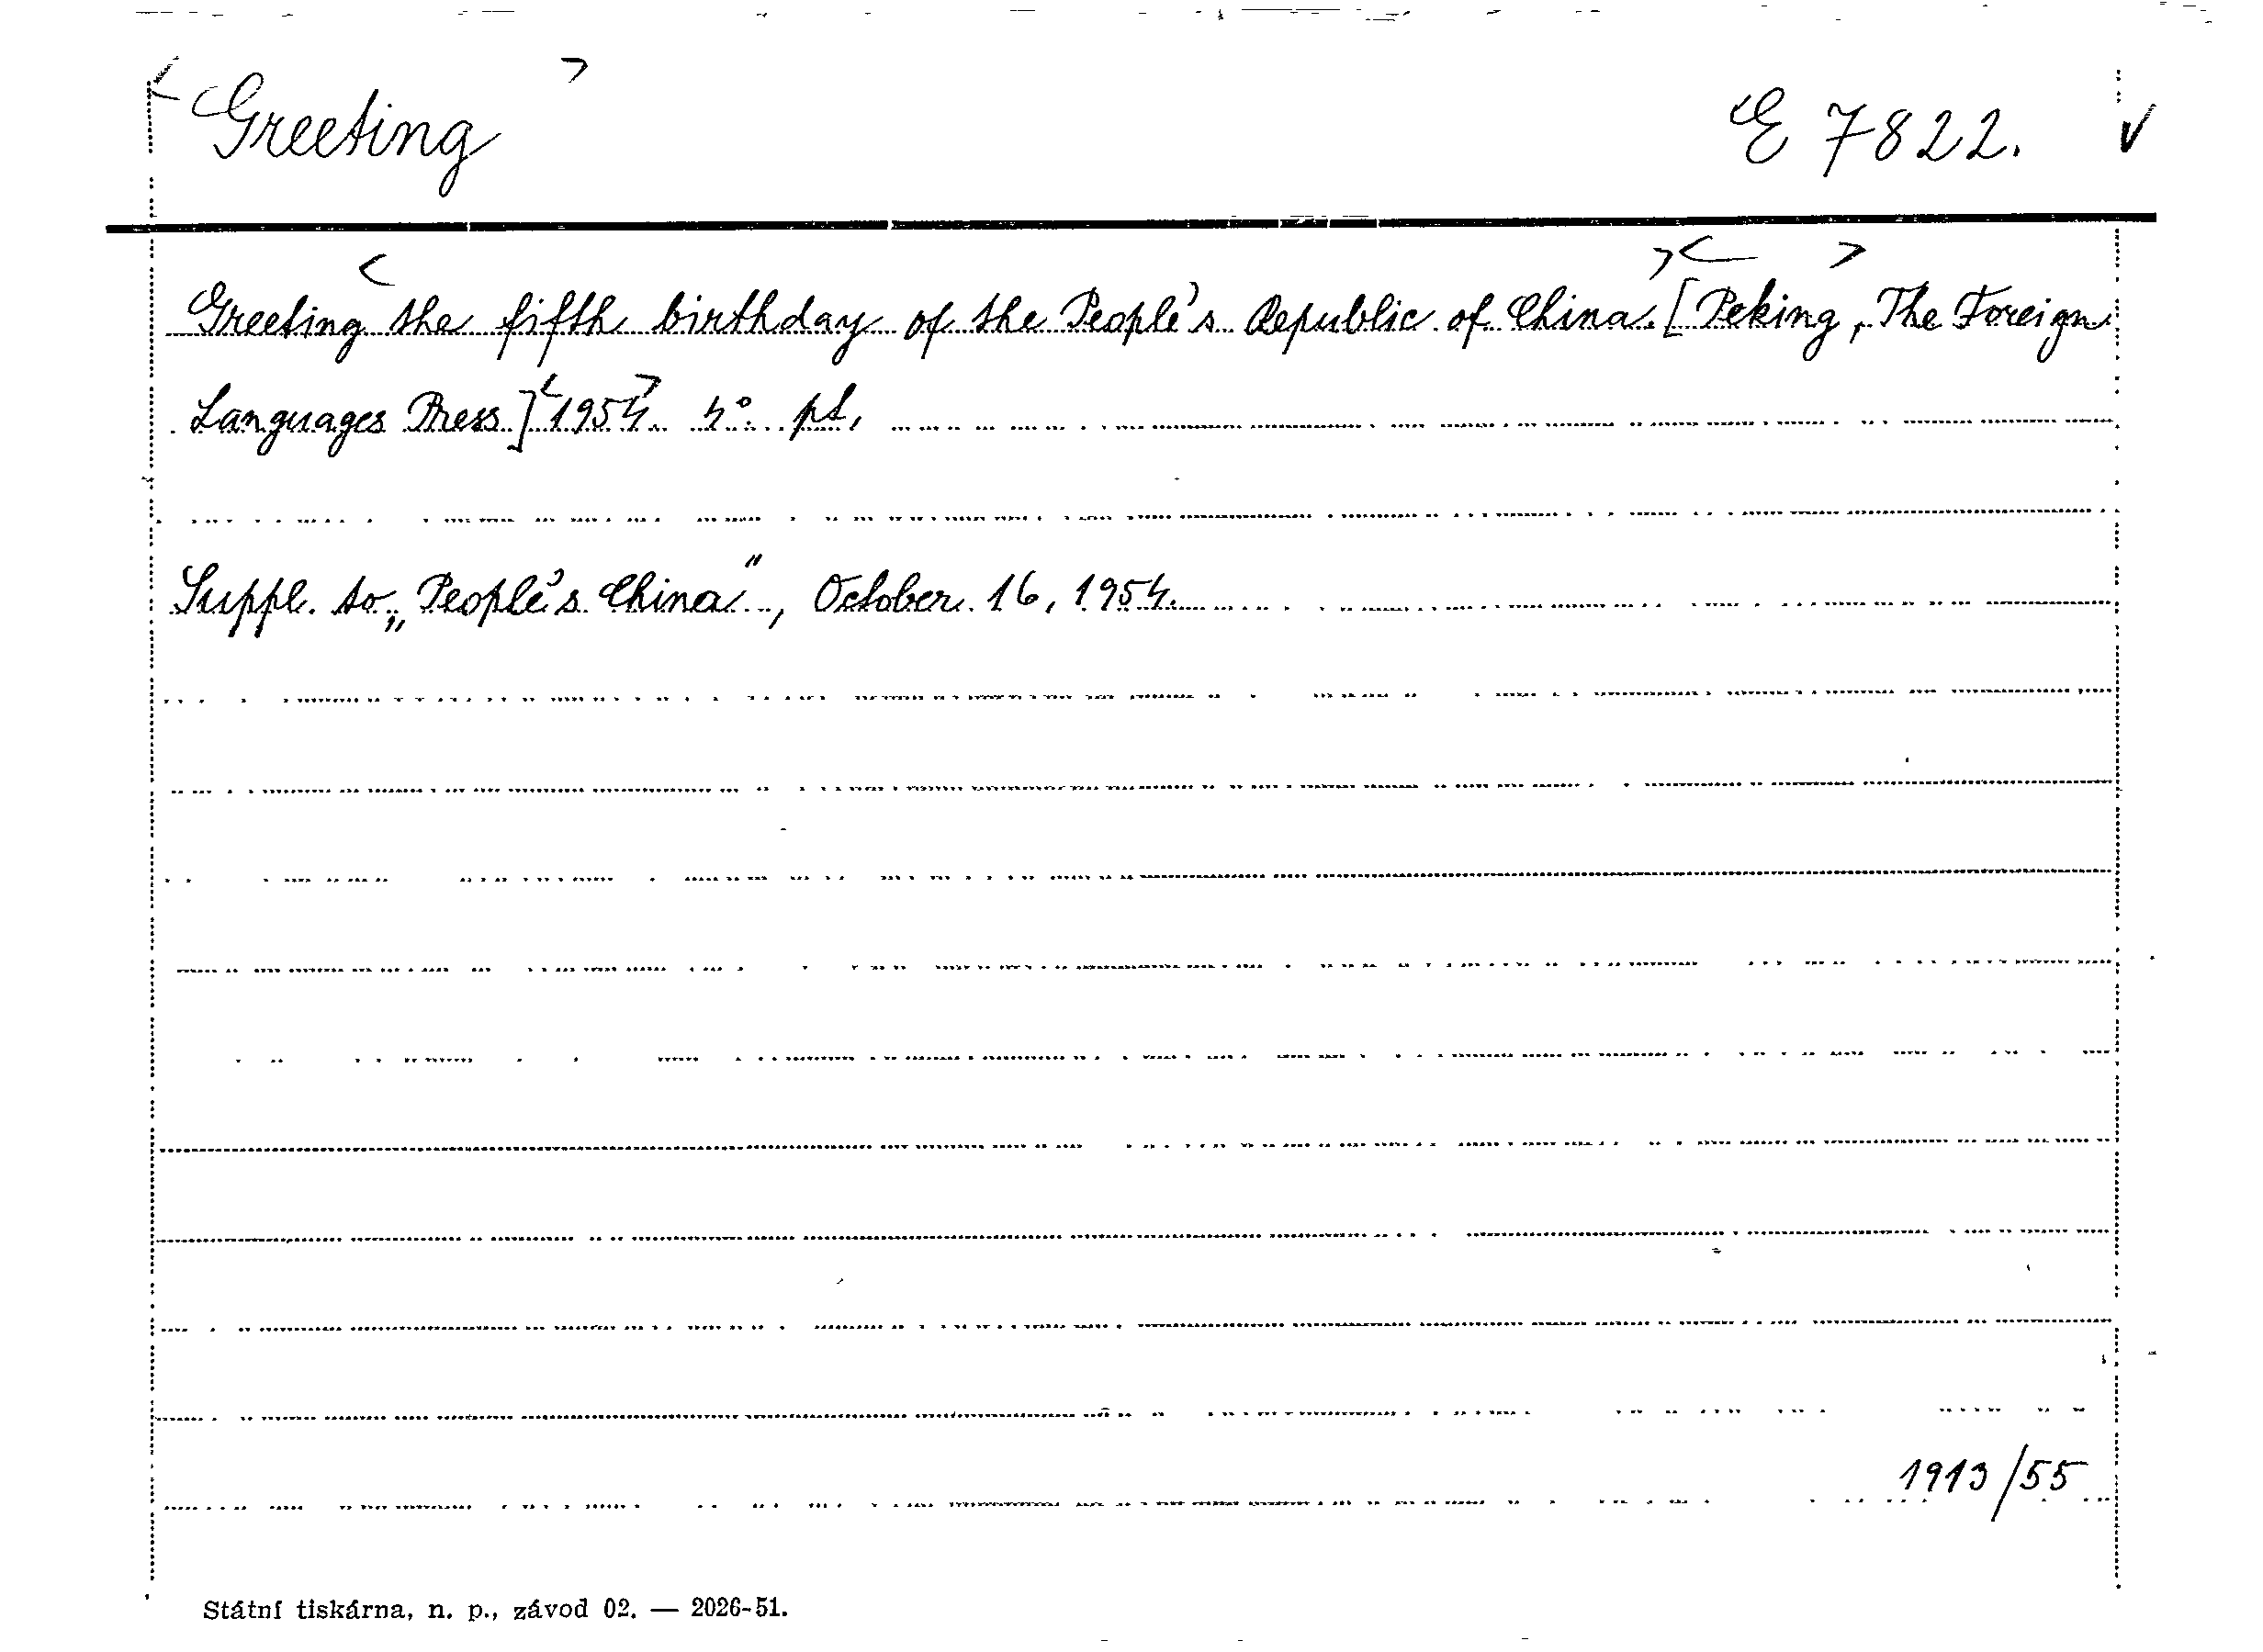 <Greeting> E 7822. ✓
Greeting <the fifth birthday of the People's Republic of China.> <[Peking>, The Foreign
Languages Press] <1954>. 4°. pt.
Suppl. to „People's China", October 16, 1954.
1913/55
Státní tiskárna, n. p., závod 02. — 2026-51.